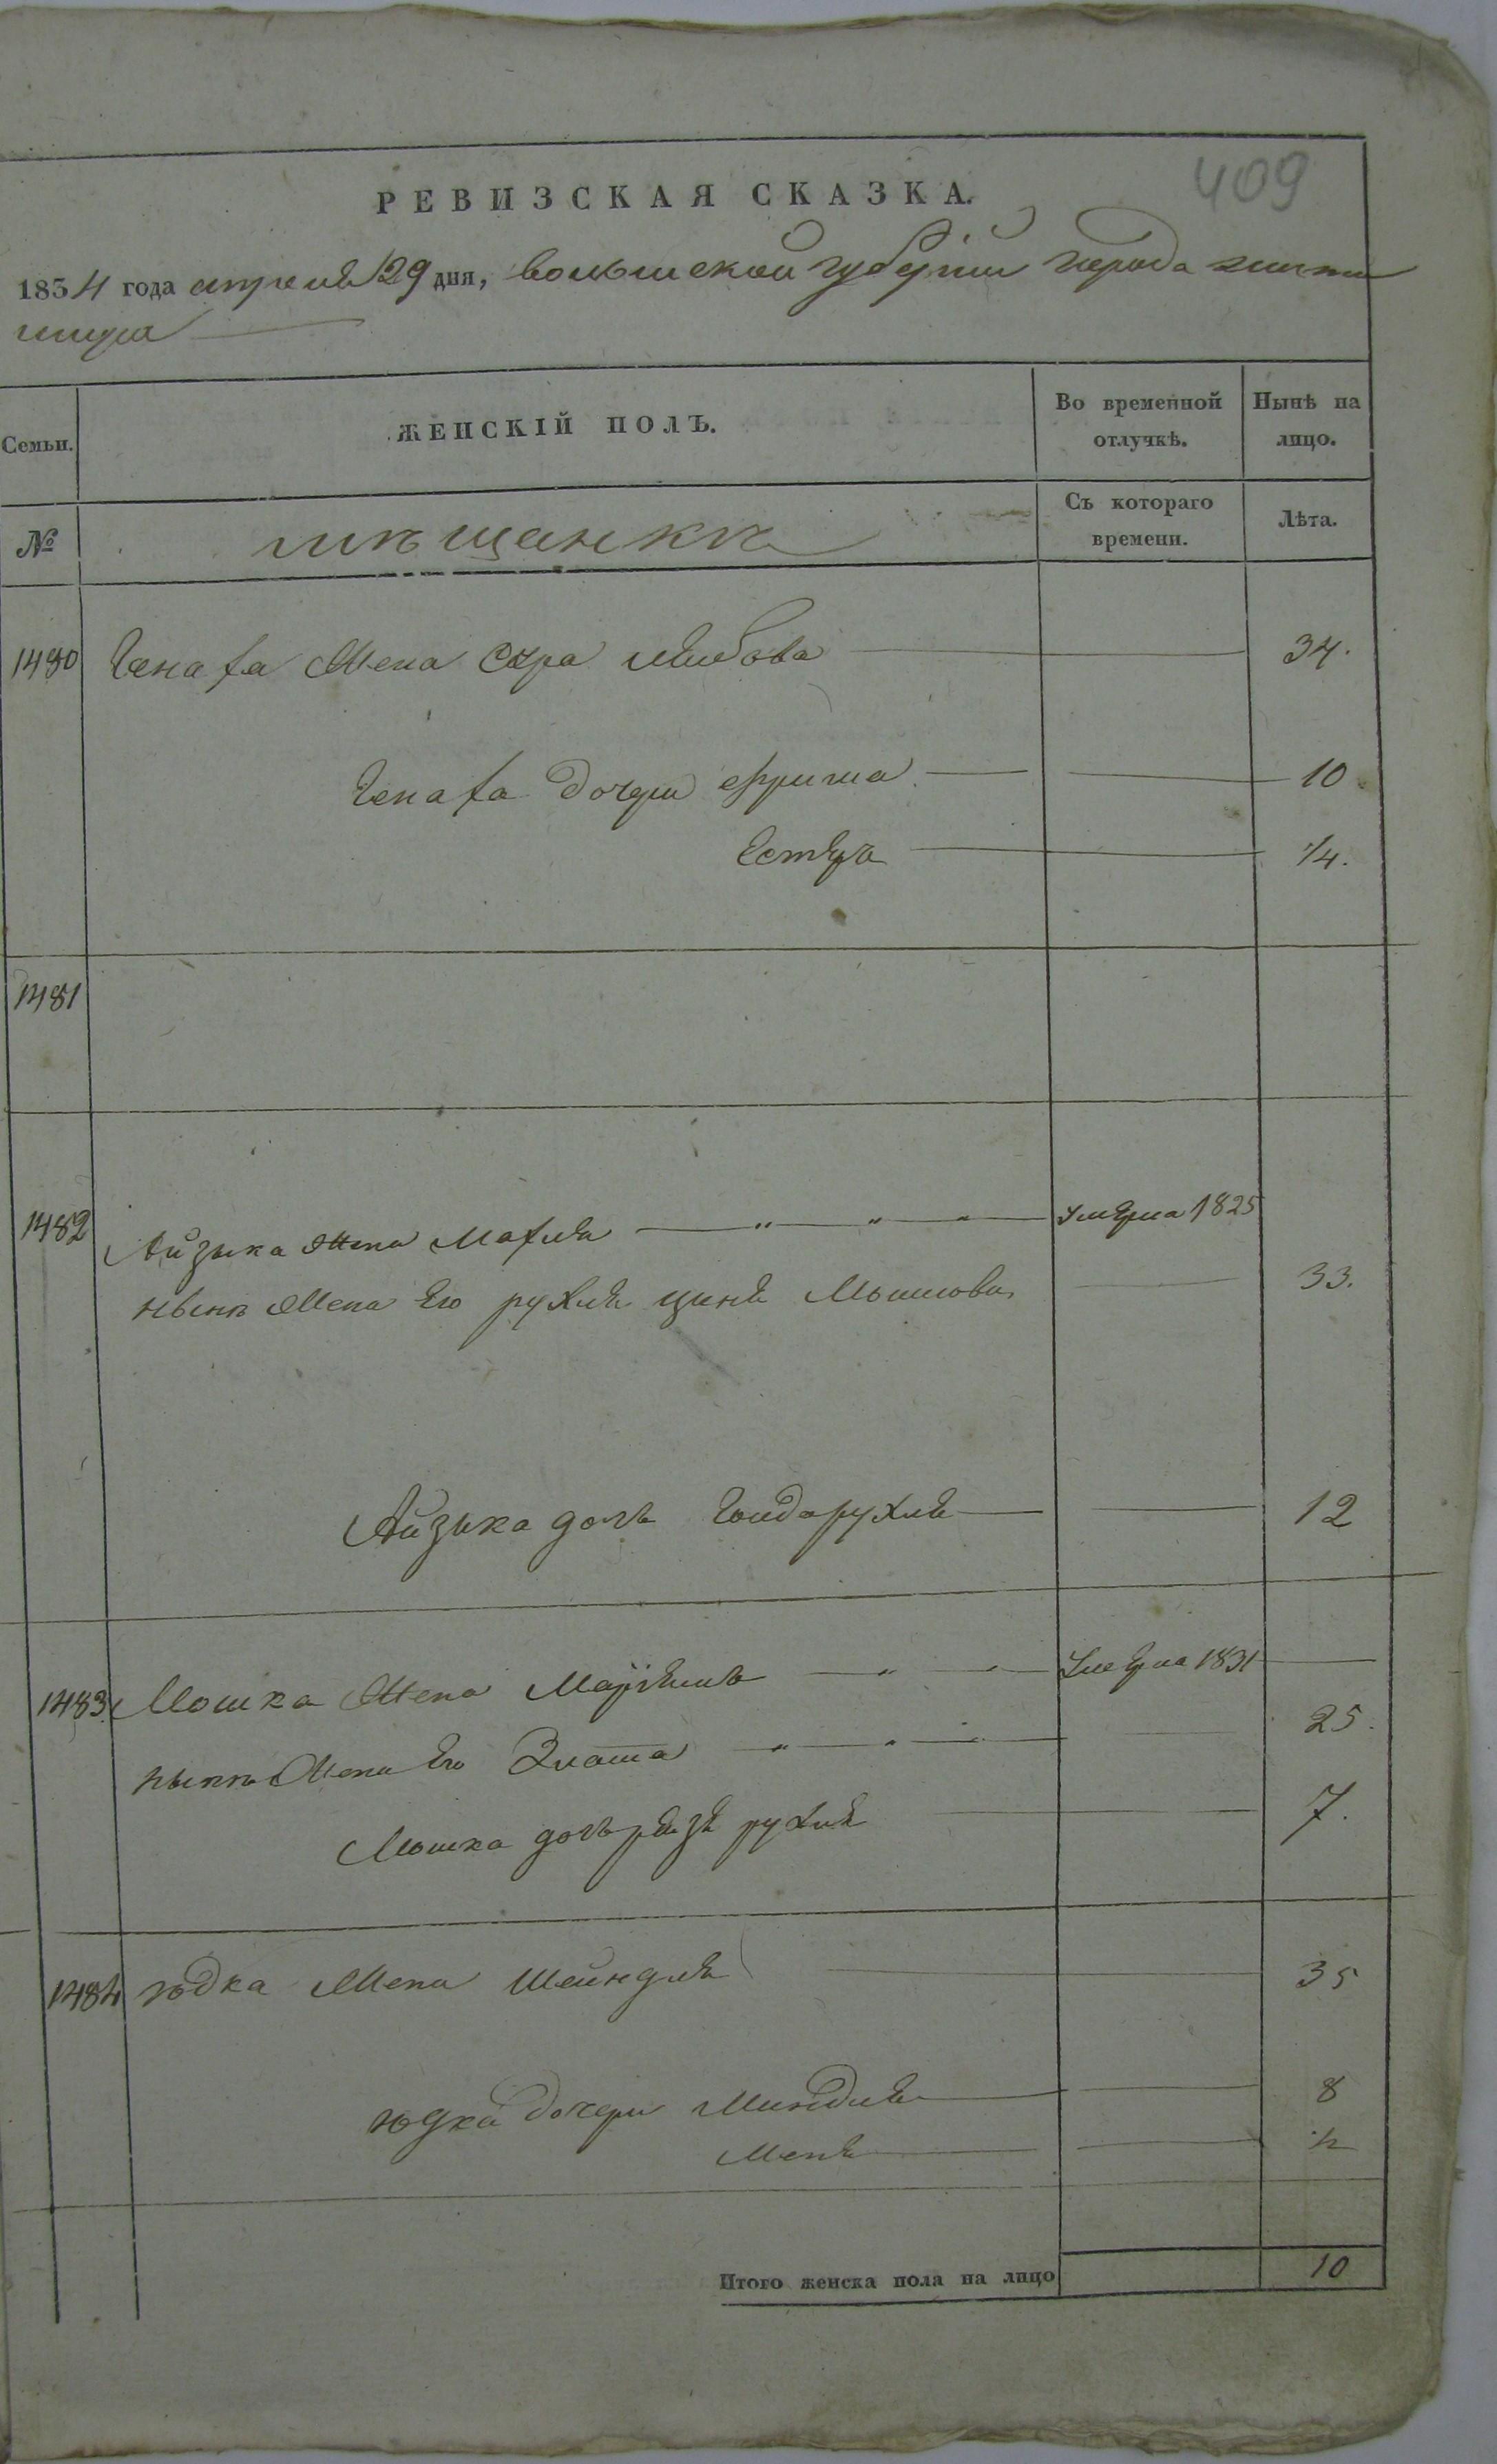 409
РЕВИЗСКАЯ СКАЗКА.
1834 года апреля 29 дня, волынской губернии города жито
мира
Семьи.
ЖЕНСКІЙ ПОЛЪ.
Во временной отлучкѣ.
Нынѣ на лицо.
№
мѣщанкѣ
Съ котораго времени.
Лѣта.
1480 Жена Сура Лейбова 34.
дочери 10
Естеръ 1/4.
1481
1482 Айзыка жена умерла 1825
нынѣ жена его рухля Мошкова 33.
Айзыка дочь голдарухля 12
1483 Мошка жена умерла 1831
нынѣ жена его Злата 25.
Мошка дочь рейзя рухля 7.
1484 юдка жена Шейндля 35
юдка дочери Миндля 8
Меня 1/2
Итого женска пола на лицо 10